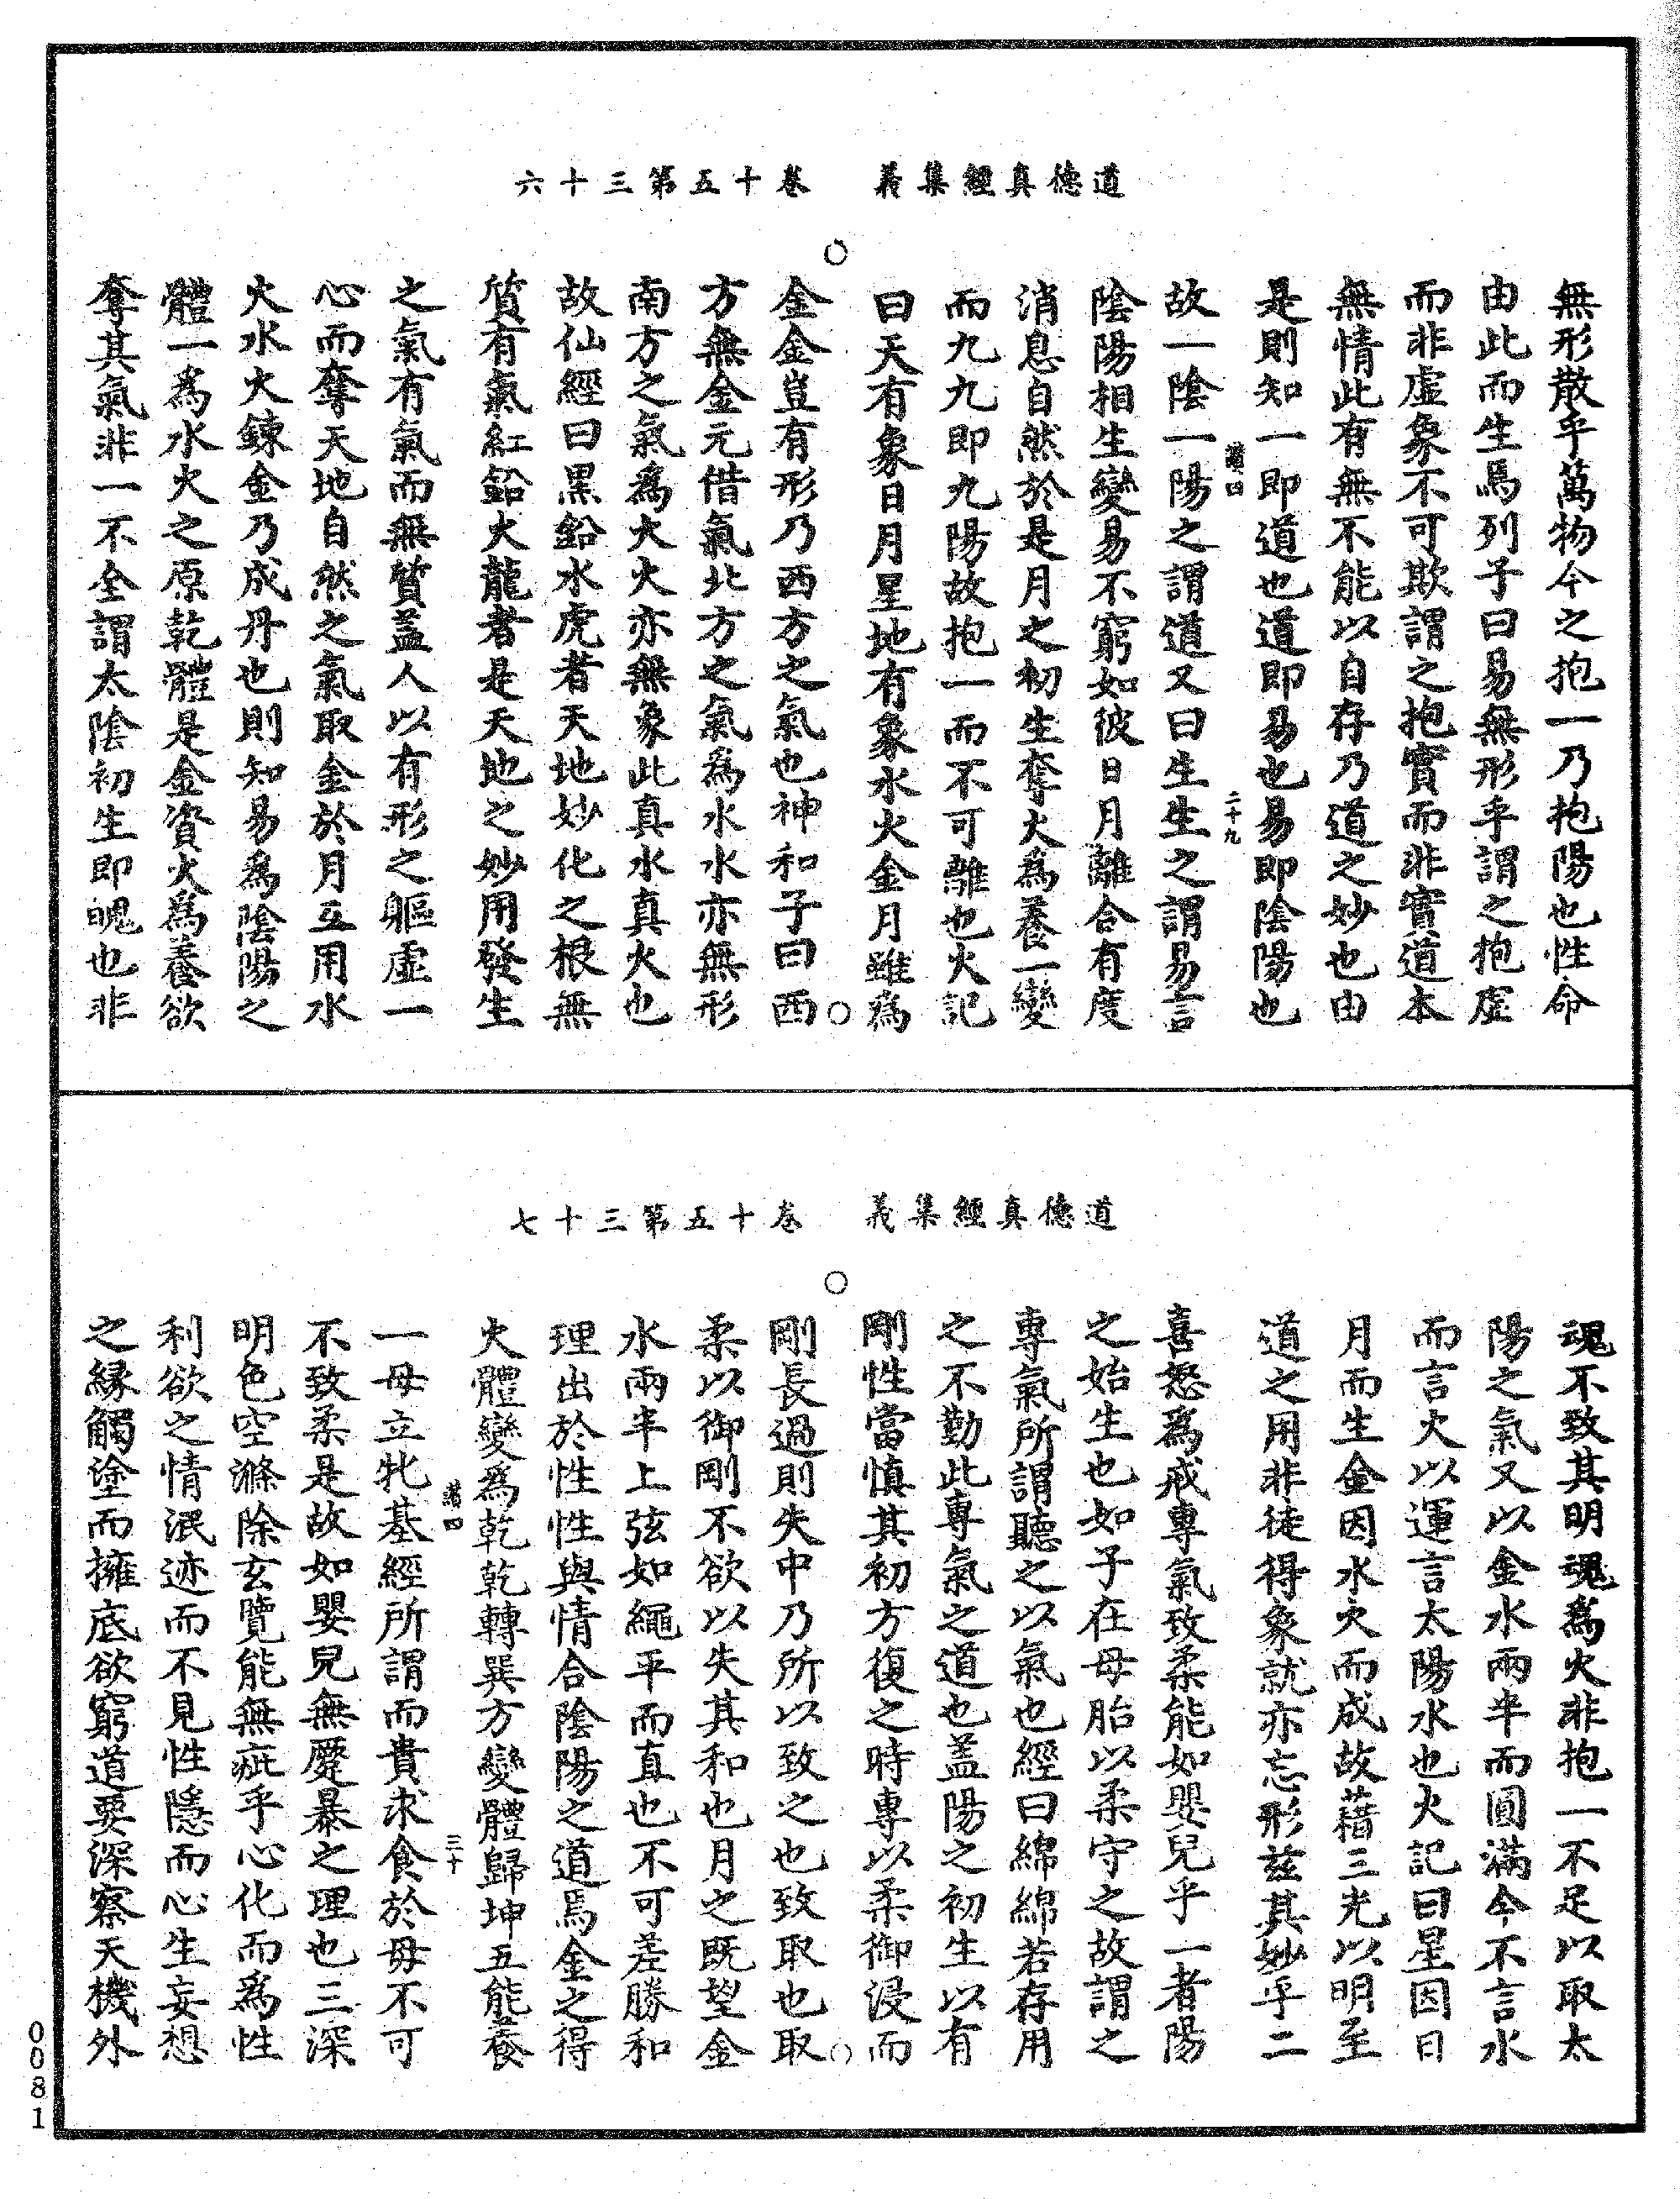 道德真經集義　卷十五第三十六
無形散乎萬物今之抱一乃抱陽也性命
由此而生焉列子曰易無形乎謂之抱虛
而非虛象不可欺謂之抱實而非實道本
無情此有無不能以自存乃道之妙也由
是則知一即道也道即易也易即陰陽也
二十九
故一陰一陽之謂道又曰生生之謂易言
陰陽相生變易不窮如彼日月離合有度
消息自然於是月之初生奪火為養一變
而九九即九陽故抱一而不可離也火記
曰天有象日月星地有象水火金月雖為
金金豈有形乃西方之氣也神和子曰西
方無金元借氣北方之氣為水水亦無形
南方之氣為火火亦無象此真水真火也
故仙經曰黑鉛水虎者天地妙化之根無
質有氣紅鉛火龍者是天地之妙用發生
之氣有氣而無質蓋人以有形之軀虛一
心而奪天地自然之氣取金於月互用水
火水火鍊金乃成丹也則知易為陰陽之
體一為水火之原乾體是金資火為養欲
奪其氣非一不全謂太陰初生即魄也非
道德真經集義　卷十五第三十七
魂不致其明魂為火非抱一不足以取太
陽之氣又以金水兩半而圓滿今不言水
而言火以運言太陽水也火記曰星因日
月而生金因水火而成故藉三光以明至
道之用非徒得象就亦忘形茲其妙乎二
喜怒為戒專氣致柔能如嬰兒乎一者陽
之始生也如子在母胎以柔守之故謂之
專氣所謂聽之以氣也經曰綿綿若存用
之不勤此專氣之道也蓋陽之初生以有
剛性當慎其初方復之時專以柔御浸而
剛長過則失中乃所以致之也致取也取
柔以御剛不欲以失其和也月之既望金
水兩半上弦如繩平而直也不可差勝和
理出於性性與情合陰陽之道焉金之得
火體變為乾乾轉巽方變體歸坤五能養
三十
一母立牝基經所謂而貴求食於母不可
不致柔是故如嬰兒無麤暴之理也三深
明色空滌除玄覽能無疵乎心化而為性
利欲之情泯迹而不見性隱而心生妄想
之緣觸塗而擁底欲窮道要深察天機外
0081